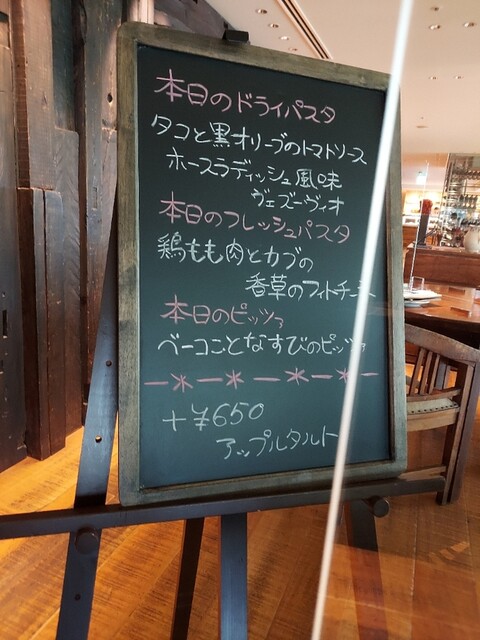 本日のドライパスタ
タコと黒オリーブのトマトソース
ホースラディッシュ風味
ヴェズーヴィオ
本日のフレッシュパスタ
鶏もも肉とカブの
香草のフィトチーネ
本日のピッツァ
ベーコンとなすびのピッツァ
+¥650
アップルタルト